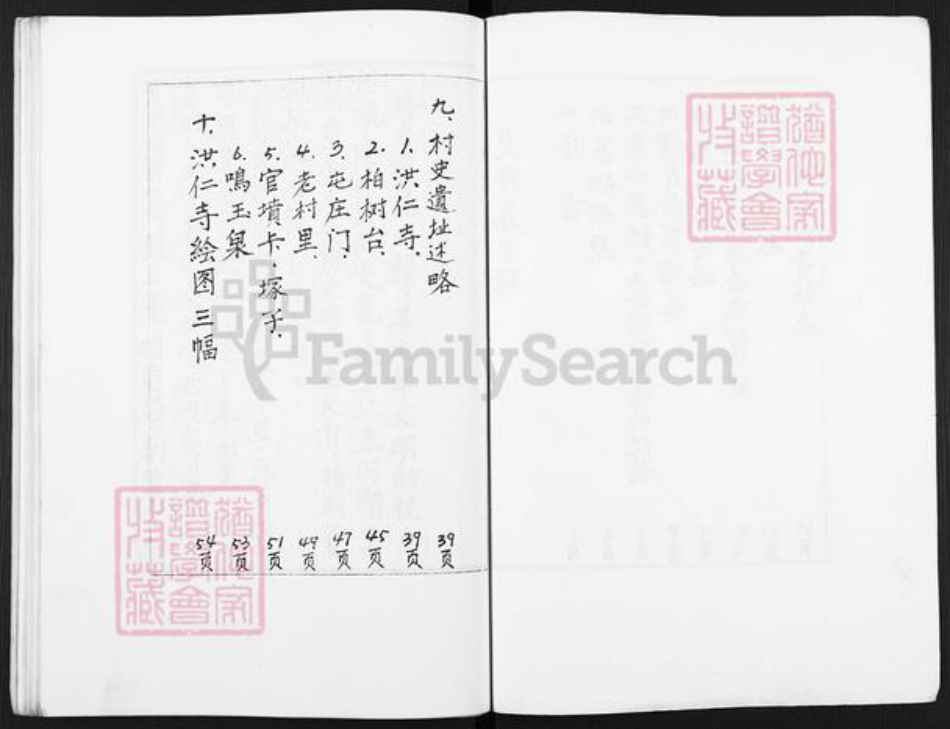 九、村史遺址述略 39页
1. 洪仁寺. 39页
2. 柏树台. 45页
3. 屯庄门. 47页
4. 老村里. 49页
5. 官墳卡. 塚子. 51页
6. 鳴玉泉 53页
十. 洪仁寺绘图三幅 54页
FamilySearch